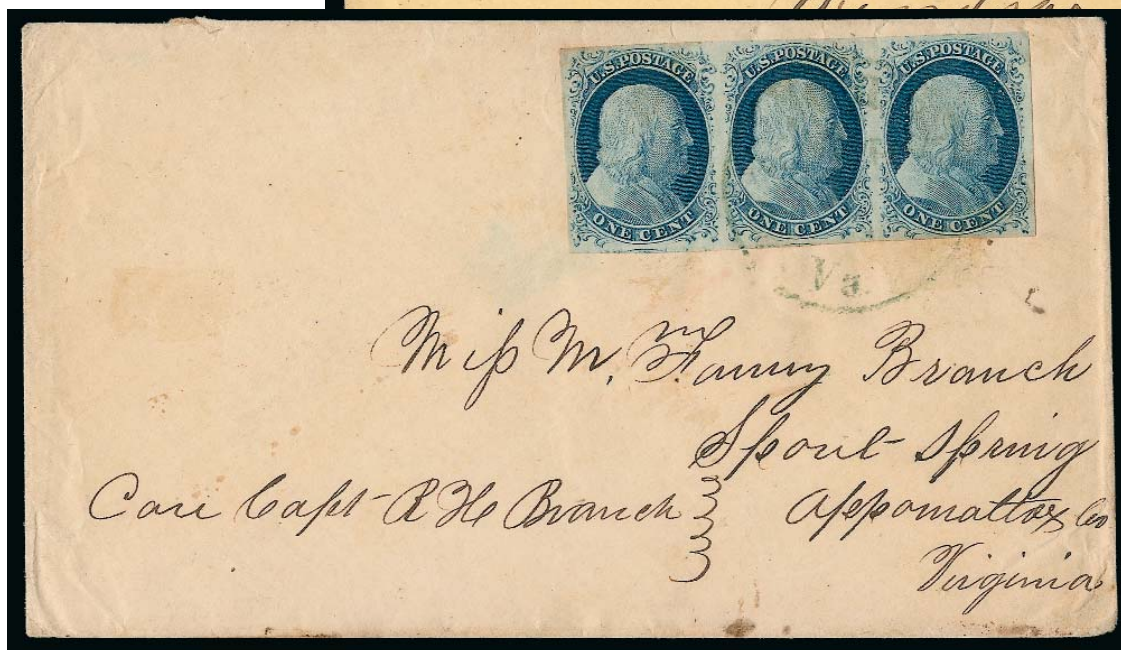 U.S. POSTAGE U.S. POSTAGE U.S. POSTAGE
ONE CENT ONE CENT ONE CENT
Va.
Miſs M. Fanny Branch
Spout Spring
Care Capt R H Branch Appomattox Co
Virginia